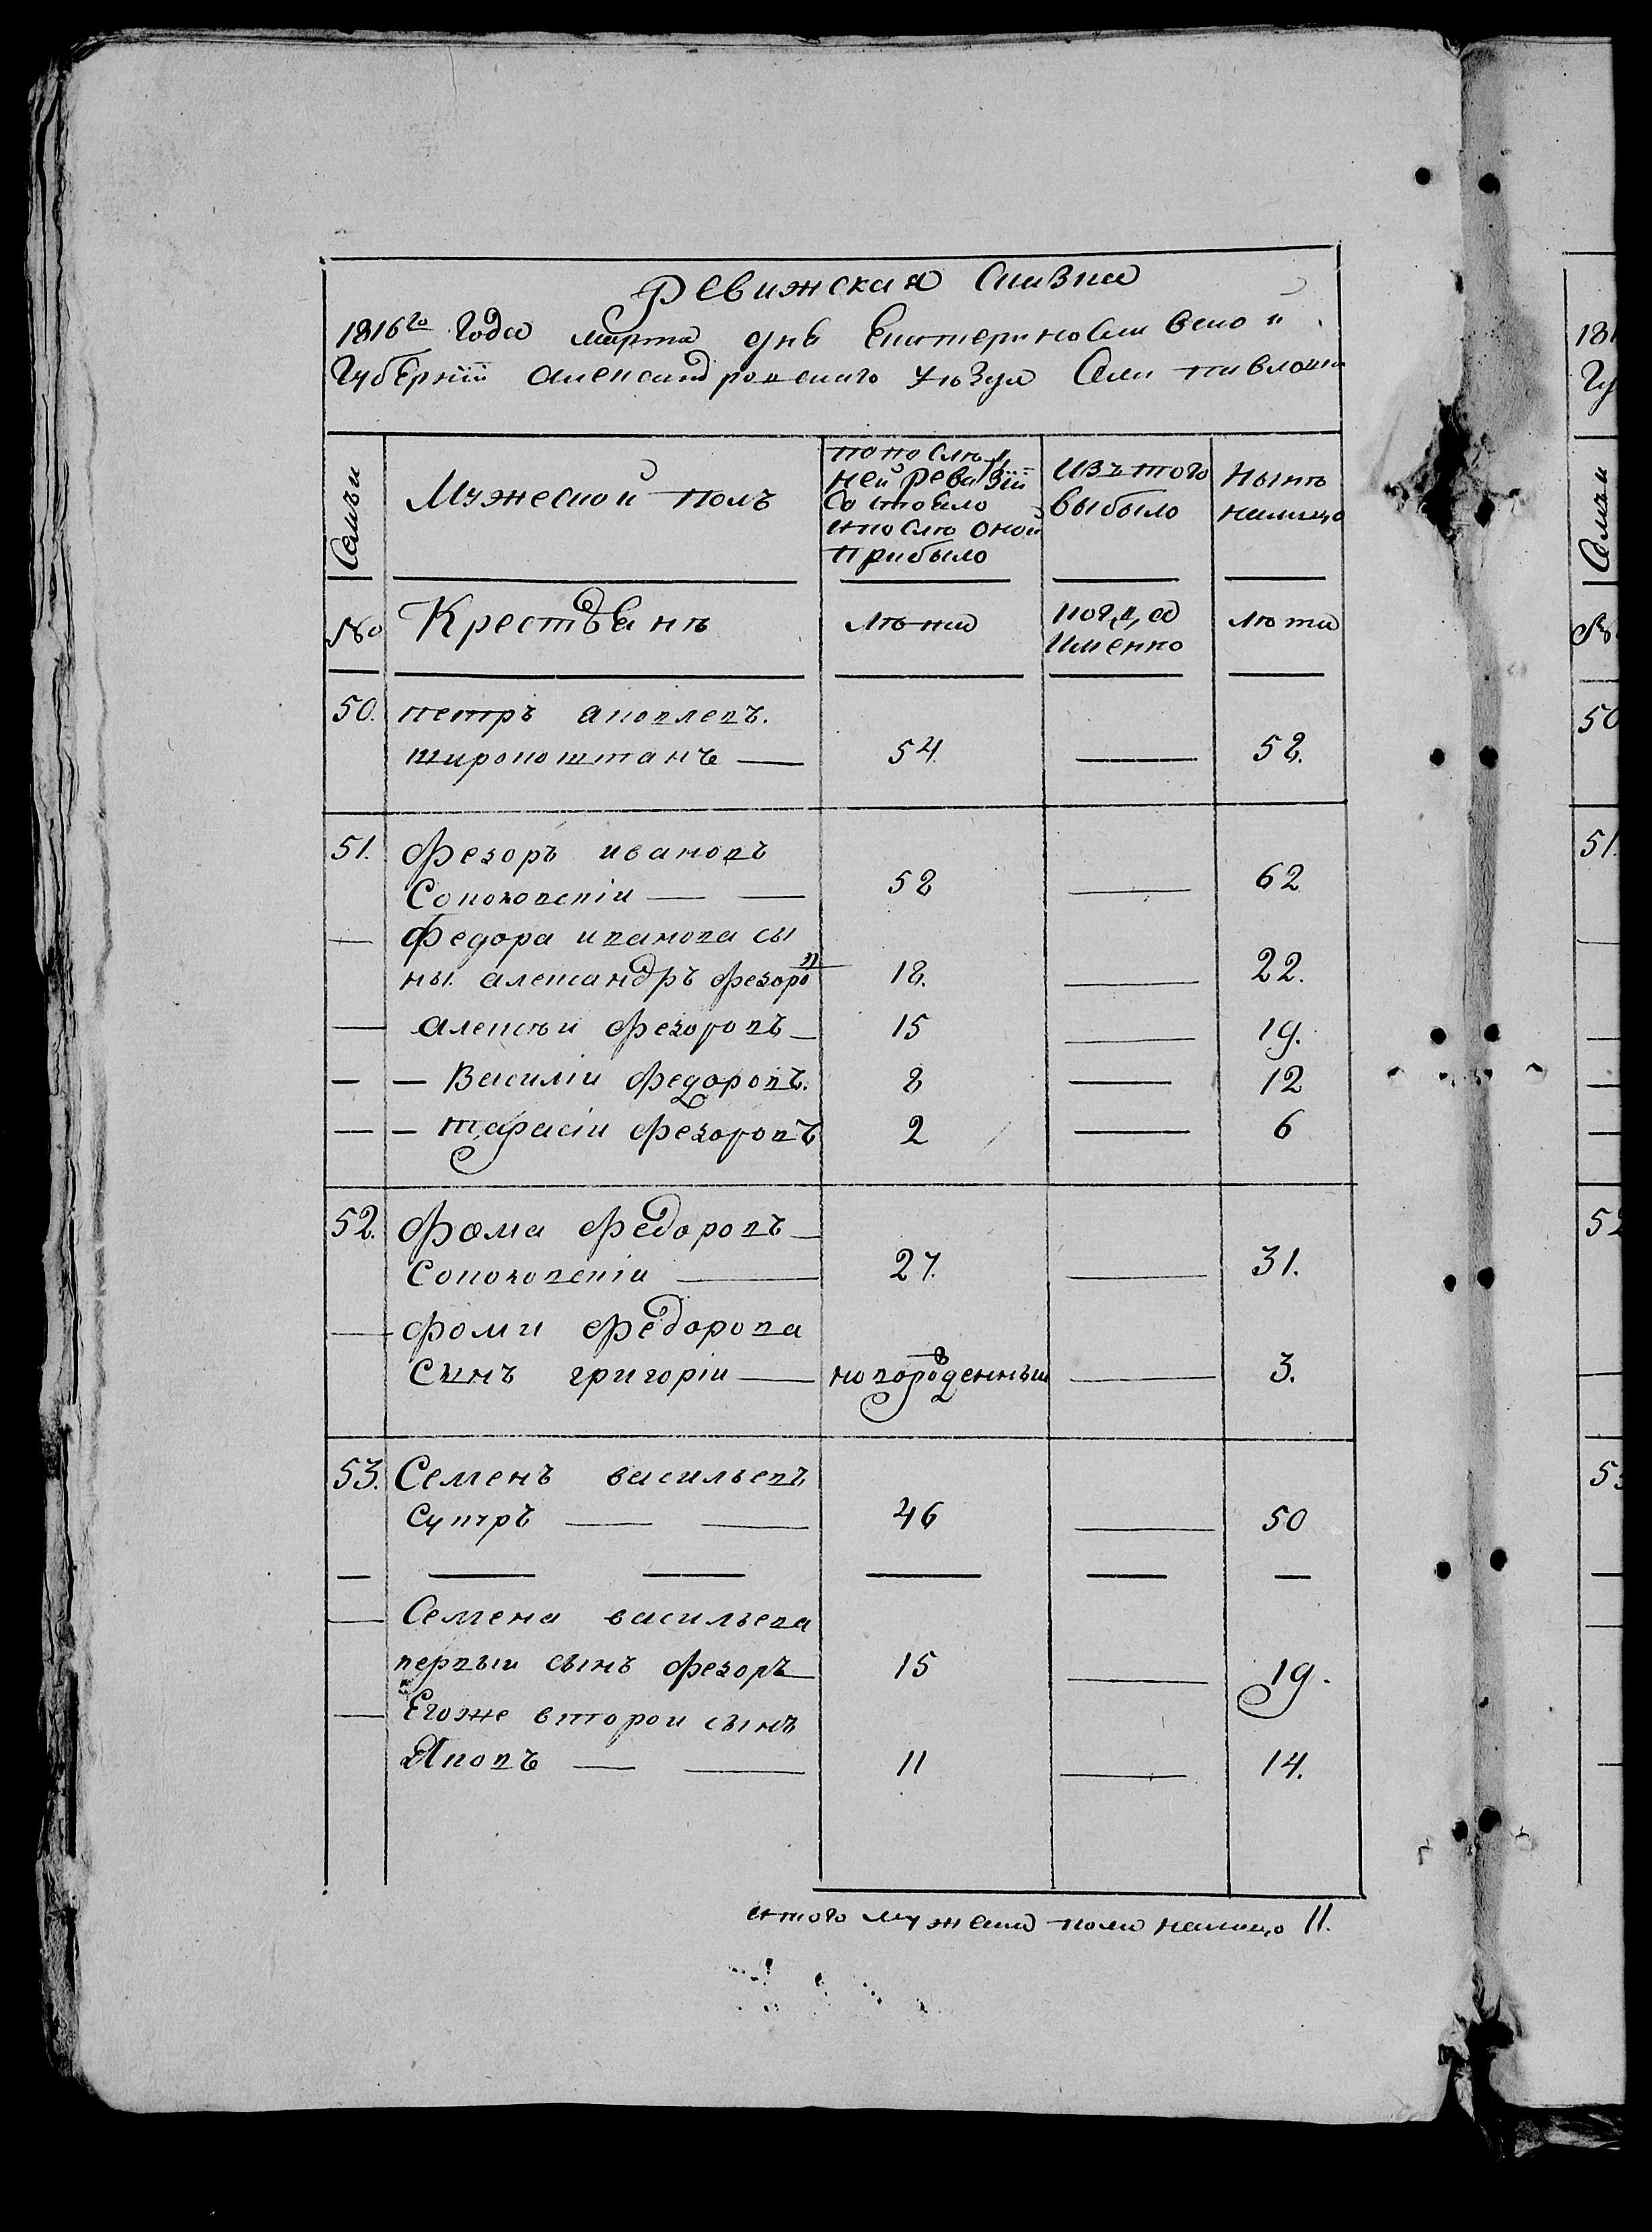 Ревижская Сказка
1816го Года марта дня Екатеринославской
Губернiи александровскаго уѣзда Села павловки
Семьи
Мужеской полъ
по послѣд
ней ревизiи
Состояло
и послѣ оной
прибыло
изъ того
выбыло
нынѣ
налицо
№
Крестьянѣ
лѣта
когда
именно
лѣта
50. петръ яковлевъ.
широкоштанъ 54. 58.
51. Федоръ ивановъ
Соколовскiи 58 62
Федора иванова сы
ны. александръ федоровъ 18. 22.
алексѣи федоровъ 15 19.
Василiи федоровъ. 8 12
тарасiи федоровъ 2 6
52. Фома федоровъ
Соколовскiи 27. 31.
фоми федорова
Сынъ григорiи новорожденныи 3.
53. Семенъ васильевъ
Супъръ 46 50
Семена васильева
первыи сынъ федоръ 15 19.
Егоже второи сынъ
Яковъ 11 14.
итого мужеска пола налицо 11.
181
Гу
Семьи
№
50
51.
52
53